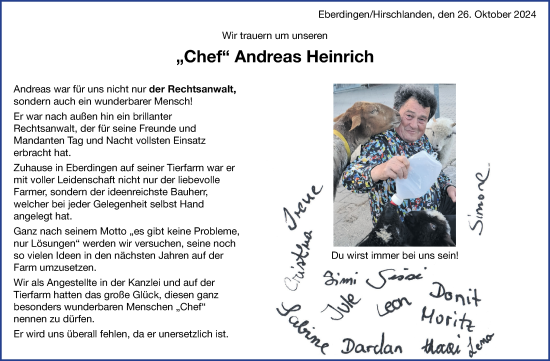 Eberdingen/Hirschlanden, den 26. Oktober 2024
Wir trauern um unseren
„Chef“ Andreas Heinrich
Andreas war für uns nicht nur der Rechtsanwalt,
sondern auch ein wunderbarer Mensch!
Er war nach außen hin ein brillanter
Rechtsanwalt, der für seine Freunde und
Mandanten Tag und Nacht vollsten Einsatz
erbracht hat.
Zuhause in Eberdingen auf seiner Tierfarm war er
mit voller Leidenschaft nicht nur der liebevolle
Farmer, sondern der ideenreichste Bauherr,
welcher bei jeder Gelegenheit selbst Hand
angelegt hat.
Ganz nach seinem Motto „es gibt keine Probleme,
nur Lösungen“ werden wir versuchen, seine noch
so vielen Ideen in den nächsten Jahren auf der
Farm umzusetzen.
Wir als Angestellte in der Kanzlei und auf der
Tierfarm hatten das große Glück, diesen ganz
besonders wunderbaren Menschen „Chef“
nennen zu dürfen.
Er wird uns überall fehlen, da er unersetzlich ist.
Du wirst immer bei uns sein!
Irene
Simone
Cristina
Jimi Sissi
Jule Leon Donit
Moritz
Sabine Dardan Lena